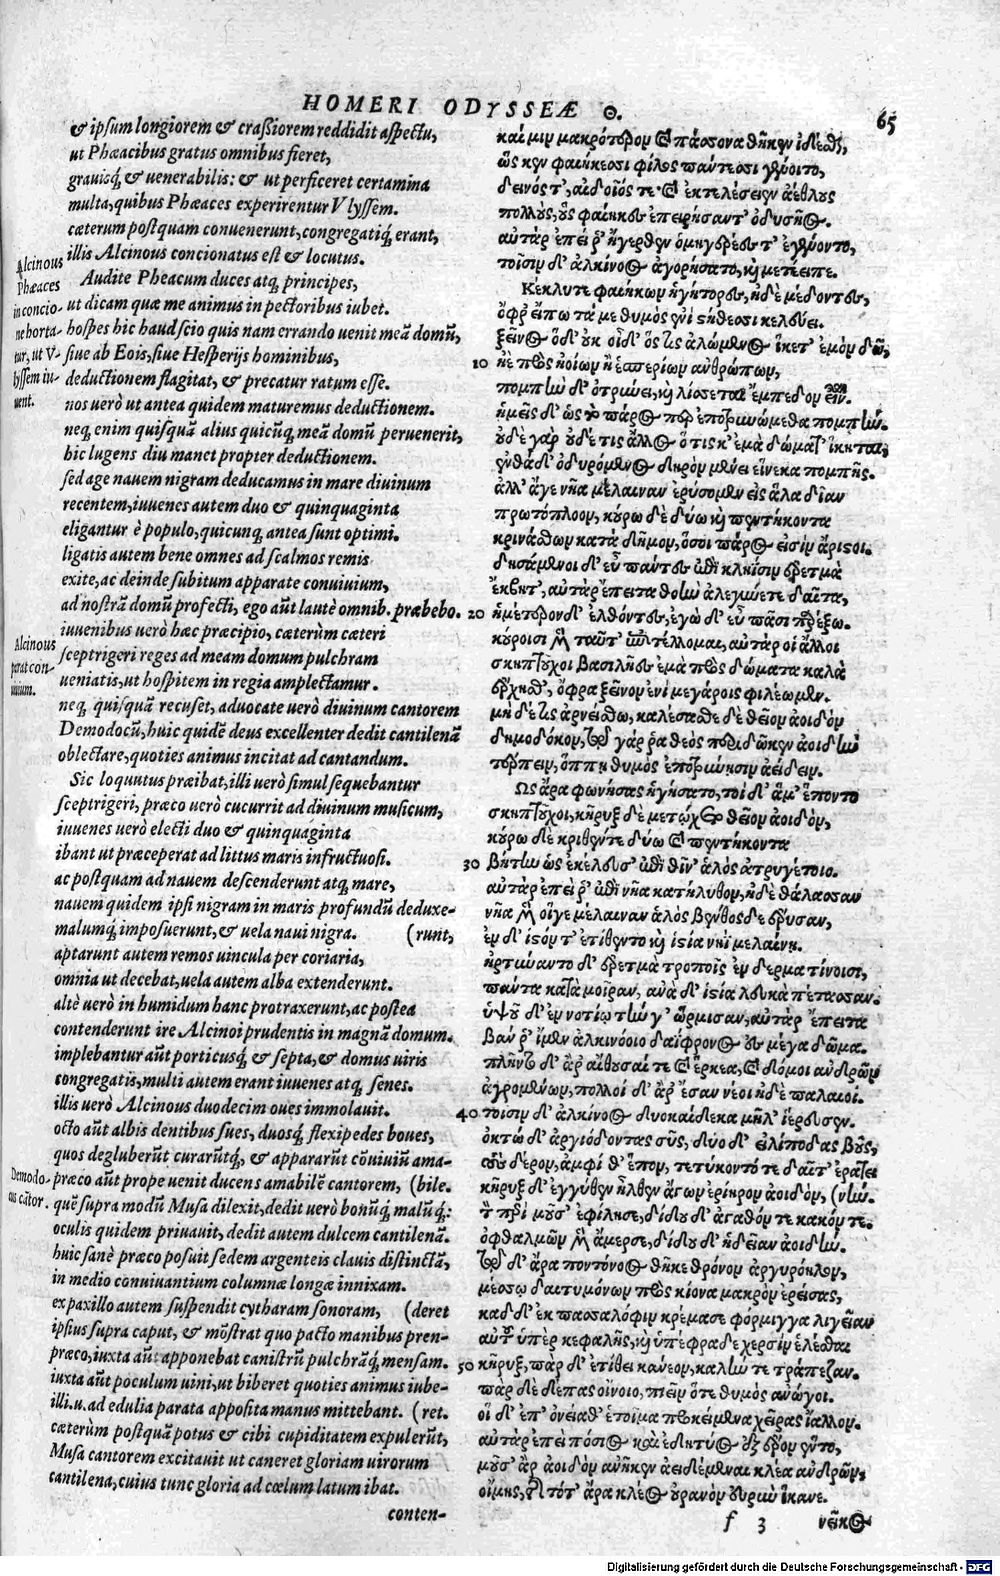 HOMERI ODYSSEÆ Θ.
65
& ipsum longiorem & crassiorem reddidit aspectu,
ut Phæacibus gratus omnibus fieret,
grauisq́; & uenerabilis: & ut perficeret certamina
multa, quibus Phæaces experirentur Vlyssem.
cæterum postquam conuenerunt, congregatiq́; erant,
illis Alcinous concionatus est & locutus.
Audite Pheacum duces atq; principes,
ut dicam quæ me animus in pectoribus iubet.
hospes hic haud scio quis nam errando uenit meã domũ,
siue ab Eois, siue Hesperijs hominibus,
deductionem flagitat, & precatur ratum esse.
nos uerò ut antea quidem maturemus deductionem.
neq; enim quisquã alius quicũq; meã domũ peruenerit,
hic lugens diu manet propter deductionem.
sed age nauem nigram deducamus in mare diuinum
recentem, iuuenes autem duo & quinquaginta
eligantur è populo, quicunq; antea sunt optimi.
ligatis autem bene omnes ad scalmos remis
exite, ac deinde subitum apparate conuiuium,
ad nostrã domũ profecti, ego aũt lautè omnib. præbebo.
iuuenibus uerò hæc præcipio, cæterùm cæteri
sceptrigeri reges ad meam domum pulchram
ueniatis, ut hospitem in regia amplectamur.
neq; quisquã recuset, aduocate uerò diuinum cantorem
Demodocũ, huic quidẽ deus excellenter dedit cantilenã
oblectare, quoties animus incitat ad cantandum.
Sic loquutus præibat, illi uerò simul sequebantur
sceptrigeri, præco uerò cucurrit ad diuinum musicum,
iuuenes uerò electi duo & quinquaginta
ibant ut præceperat ad littus maris infructuosi.
ac postquam ad nauem descenderunt atq; mare,
nauem quidem ipsi nigram in maris profundũ deduxe-
malumq́; imposuerunt, & uela naui nigra. (runt,
aptarunt autem remos uincula per coriaria,
omnia ut decebat, uela autem alba extenderunt.
altè uerò in humidum hanc protraxerunt, ac postea
contenderunt ire Alcinoi prudentis in magnã domum.
implebantur aũt porticusq́; & septa, & domus uiris
congregatis, multi autem erant iuuenes atq; senes.
illis uerò Alcinous duodecim oues immolauit.
octo aũt albis dentibus sues, duosq́; flexipedes boues,
quos degluberũt curarũtq́;, & appararũt cõuiuiũ ama-
præco aũt prope uenit ducens amabilẽ cantorem, (bile.
quẽ supra modũ Musa dilexit, dedit uerò bonũq́; malũq́;:
oculis quidem priuauit, dedit autem dulcem cantilenã.
huic sanè præco posuit sedem argenteis clauis distinctã,
in medio conuiuantium columnæ longæ innixam.
ex paxillo autem suspendit cytharam sonoram, (deret
ipsius supra caput, & mõstrat quo pacto manibus pren-
præco, iuxta aũt apponebat canistrũ pulchrãq́; mensam.
iuxta aũt poculum uini, ut biberet quoties animus iube-
illi.u. ad edulia parata apposita manus mittebant. (ret.
cæterùm postquã potus & cibi cupiditatem expulerũt,
Musa cantorem excitauit ut caneret gloriam uirorum
cantilena, cuius tunc gloria ad cœlum latum ibat.
conten-
Alcinous
Phæaces
in concio-
ne horta-
tur, ut V-
lyssem iu-
uent.
Alcinous
parat con-
uiuium.
Demodo-
cus cãtor.
καί μιν μακρότερον καὶ πάσσονα θῆκεν ἰδέσθαι,
ὥς κεν φαιήκεσσι φίλος πάντεσσι γένοιτο,
δεινός τ', αἰδοῖός τε καὶ ἐκτελέσειεν ἀέθλους
πολλούς, οὓς φαίηκες ἐπειρήσαντ' ὀδυσῆος.
αὐτὰρ ἐπεί ῥ' ἤγερθεν ὁμηγερέες τ' ἐγένοντο,
τοῖσιν δ' ἀλκίνοος ἀγορήσατο, καὶ μετέειπε.
Κέκλυτε φαιήκων ἡγήτορες, ἠδὲ μέδοντες,
ὄφρ' εἴπω τά με θυμὸς ἐνὶ στήθεσσι κελεύει.
ξεῖνος ὅδ' οὐκ οἶδ' ὅς τις ἀλώμενος ἵκετ' ἐμὸν δῶ,
10 ἠὲ πρὸς ἠοίων ἢ ἑσπερίων ἀνθρώπων,
πομπὴν δ' ὀτρύνει, καὶ λίσσεται ἔμπεδον εἶναι.
ἡμεῖς δ' ὡς τὸ πάρος περ ἐποτρυνώμεθα πομπήν.
οὐδὲ γὰρ οὐδέ τις ἄλλος ὅτις κ' ἐμὰ δώματ' ἵκηται,
ἐνθάδ' ὀδυρόμενος δηρὸν μένει εἵνεκα πομπῆς.
ἀλλ' ἄγε νῆα μέλαιναν ἐρύσομεν εἰς ἅλα δῖαν
πρωτόπλοον, κούρω δὲ δύω καὶ πεντήκοντα
κρινάσθων κατὰ δῆμον, ὅσοι πάρος εἰσὶν ἄριστοι.
δησάμενοι δ' εὖ πάντες ἐπὶ κληῖσιν ἐρετμὰ
ἔκβητ', αὐτὰρ ἔπειτα θοὴν ἀλεγύνετε δαῖτα,
20 ἡμέτερονδ' ἐλθόντες, ἐγὼ δ' εὖ πᾶσι παρέξω.
κούροισι μὲν ταῦτ' ἐπιτέλλομαι, αὐτὰρ οἱ ἄλλοι
σκηπτοῦχοι βασιλῆες ἐμὰ πρὸς δώματα καλὰ
ἔρχεσθ', ὄφρα ξεῖνον ἐνὶ μεγάροις φιλέωμεν.
μηδέ τις ἀρνείσθω, καλέσασθε δὲ θεῖον ἀοιδὸν
δημοδόκον, τῷ γάρ ῥα θεὸς περὶ δῶκεν ἀοιδὴν
τέρπειν, ὅππῃ θυμὸς ἐποτρύνησιν ἀείδειν.
Ὣς ἄρα φωνήσας ἡγήσατο, τοὶ δ' ἅμ' ἕποντο
σκηπτοῦχοι, κῆρυξ δὲ μετῴχετο θεῖον ἀοιδόν,
κούρω δὲ κριθέντε δύω καὶ πεντήκοντα
30 βήτην ὡς ἐκέλευσ' ἐπὶ θῖν' ἁλὸς ἀτρυγέτοιο.
αὐτὰρ ἐπεί ῥ' ἐπὶ νῆα κατήλυθον, ἠδὲ θάλασσαν
νῆα μὲν οἵγε μέλαιναν ἁλὸς βένθοσδε ἔρυσαν,
ἐν δ' ἱστόν τ' ἐτίθεντο καὶ ἱστία νηῒ μελαίνῃ.
ἠρτύναντο δ' ἐρετμὰ τροποῖς ἐν δερματίνοισι,
πάντα κατὰ μοῖραν, ἀνὰ δ' ἱστία λευκὰ πέτασσαν.
ὑψοῦ δ' ἐν νοτίῳ τήν γ' ὥρμισαν, αὐτὰρ ἔπειτα
βάν ῥ' ἴμεν ἀλκινόοιο δαΐφρονος ἐς μέγα δῶμα.
πλῆντο δ' ἄρ αἴθουσαί τε καὶ ἕρκεα, καὶ δόμοι ἀνδρῶν
ἀγρομένων, πολλοὶ δ' ἄρ ἔσαν νέοι ἠδὲ παλαιοί.
40 τοῖσιν δ' ἀλκίνοος δυοκαίδεκα μῆλ' ἱέρευσεν.
ὀκτὼ δ' ἀργιόδοντας σῦς, δύο δ' εἰλίποδας βοῦς,
τοὺς δέρον, ἀμφί θ' ἕπον, τετύκοντό τε δαῖτ' ἐρατει
κῆρυξ δ' ἐγγύθεν ἦλθεν ἄγων ἐρίηρον ἀοιδόν, (νήν.
τὸν περὶ μοῦσ' ἐφίλησε, δίδου δ' ἀγαθόν τε κακόν τε.
ὀφθαλμῶν μὲν ἄμερσε, δίδου δ' ἡδεῖαν ἀοιδήν.
τῷ δ' ἄρα ποντόνοος θῆκε θρόνον ἀργυρόηλον,
μέσσῳ δαιτυμόνων πρὸς κίονα μακρὸν ἐρείσας,
καδδ' ἐκ πασσαλόφιν κρέμασε φόρμιγγα λιγεῖαν
αὐτοῦ ὑπὲρ κεφαλῆς, καὶ ὑπέφραδε χερσὶν ἑλέσθαι
50 κῆρυξ, πὰρ δ' ἐτίθει κάνεον, καλήν τε τράπεζαν.
πὰρ δὲ δέπας οἴνοιο, πιεῖν ὅτε θυμὸς ἀνώγοι.
οἱ δ' ἐπ' ὀνείαθ' ἑτοῖμα προκείμενα χεῖρας ἴαλλον.
αὐτὰρ ἐπεὶ πόσιος καὶ ἐδητύος ἐξ ἔρον ἕντο,
μοῦσ' ἄρ ἀοιδὸν ἀνῆκεν ἀειδέμεναι κλέα ἀνδρῶν,
οἴμης, τῆς τότ' ἄρα κλέος οὐρανὸν εὐρὺν ἵκανε.
f 3
νεῖκος
Digitalisierung gefördert durch die Deutsche Forschungsgemeinschaft - DFG